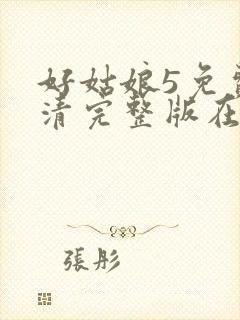 好姑娘5免费
清完整版在
張彤